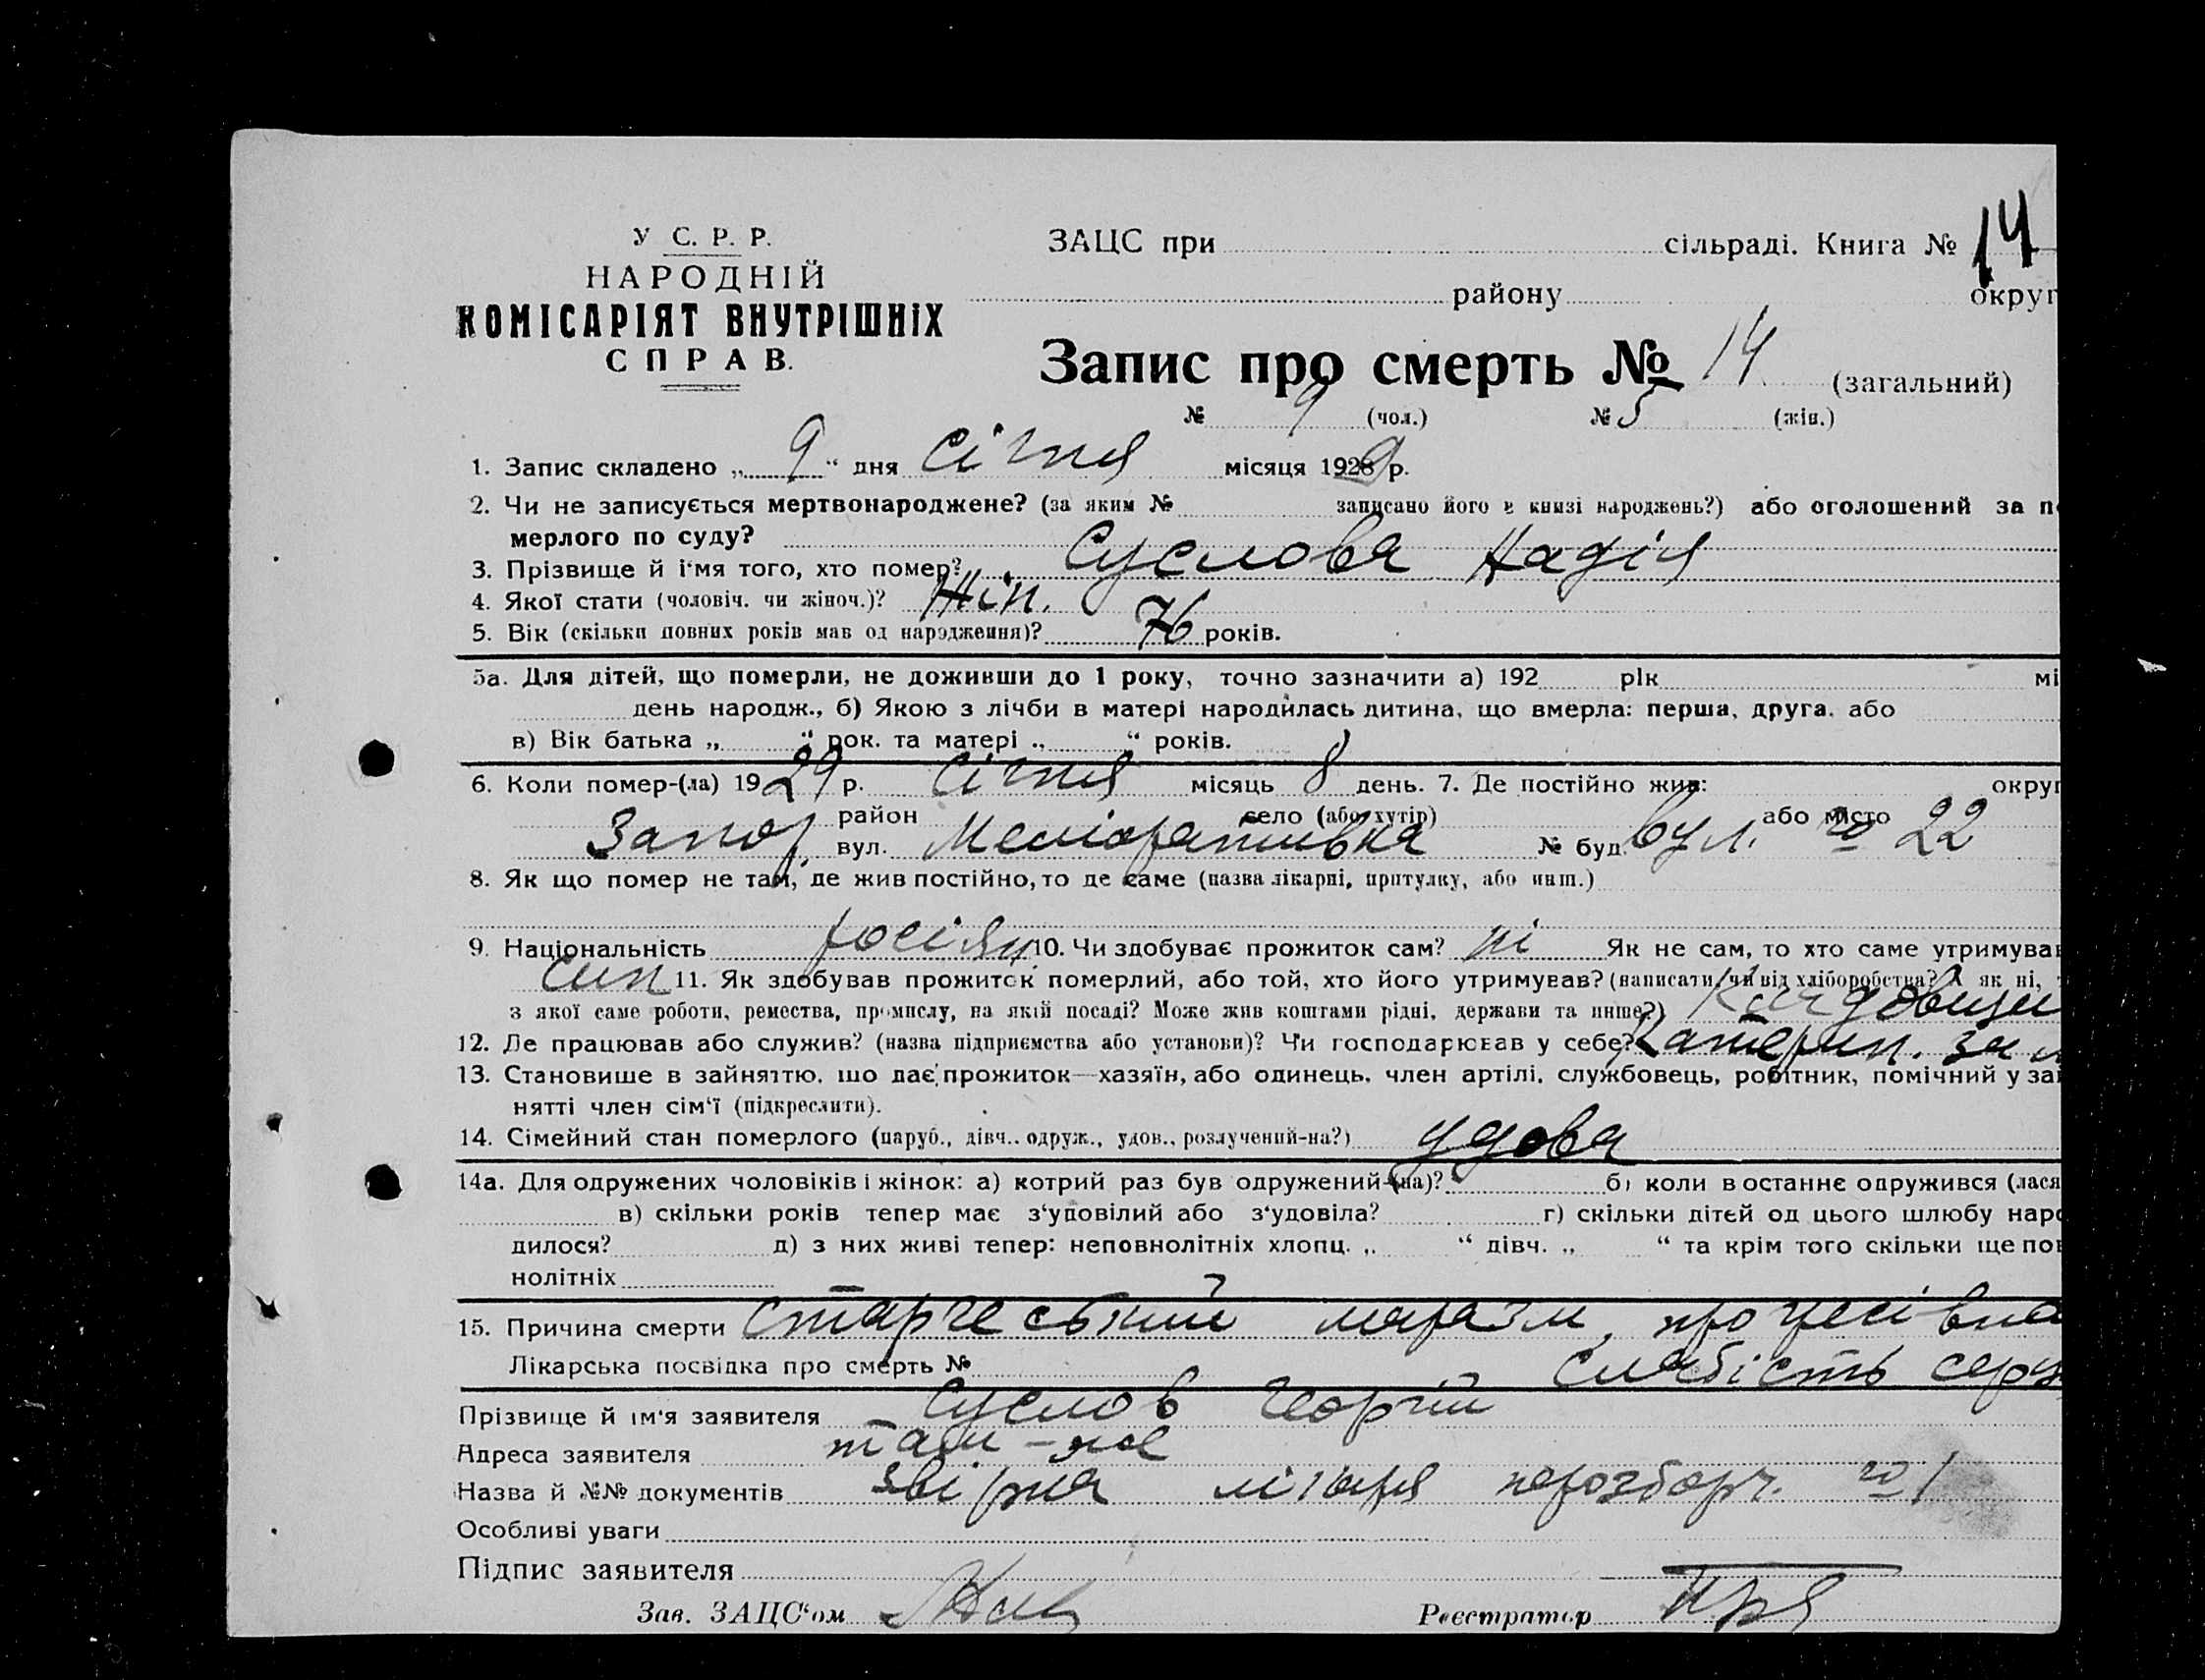 У С. Р. Р.
НАРОДНІЙ
КОМІСАРІЯТ ВНУТРІШНІХ
СПРАВ.
ЗАЦС при сільраді. Книга № 14
району округ
Запис про смерть № 14 (загальний)
№ 9 (чол.) № 5 (жін.)
1. Запис складено „ 9 “ дня Січня місяця 1929 р.
2. Чи не записується мертвонароджене? (за яким № записано його в книзі народжень?) або оголошений за по
мерлого по суду?
3. Прізвище й ім'я того, хто помер? Суслова Надія
4. Якої стати (чоловіч. чи жіноч.)? Жін.
5. Вік (скільки повних років мав од народження)? 76 років.
5а. Для дітей, що померли, не доживши до 1 року, точно зазначити а) 192 рік мі
день народж., б) Якою з лічби в матері народилась дитина, що вмерла: перша, друга, або
в) Вік батька „ “ рок. та матері „ “ років.
6. Коли помер-(ла) 1929 р. Січня місяць 8 день. 7. Де постійно жив: округ
район село (або хутір) або місто
Запор. вул. Меліоративна № буд. вул. № 22
8. Як що помер не там, де жив постійно, то де саме (назва лікарні, притулку, або инш.)
9. Національність росіян 10. Чи здобуває прожиток сам? ні Як не сам, то хто саме утримував
син 11. Як здобував прожиток померлий, або той, хто його утримував? (написати, чи від хліборобства? А як ні, т
з якої саме роботи, ремества, промислу, на якій посаді? Може жив коштами рідні, держави та инше?) Кладовщи
12. Де працював або служив? (назва підприємства або установи)? Чи господарював у себе? Катерин. за
13. Становище в зайняттю, що дає прожиток—хазяїн, або одинець, член артілі, службовець, робітник, помічний у зай
нятті член сім'ї (підкреслити).
14. Сімейний стан померлого (паруб., дівч., одруж., удов., розлучений-на?) удова
14а. Для одружених чоловіків і жінок: а) котрий раз був одружений-(на)? б) коли востаннє одружився (лася
в) скільки років тепер має з'удовілий або з'удовіла? г) скільки дітей од цього шлюбу наро
дилося? д) з них живі тепер: неповнолітніх хлопц. „ “ дівч. „ “ та крім того скільки ще пов
нолітніх
15. Причина смерти старческий маразм, прогресівна
Лікарська посвідка про смерть № слабість серц
Прізвище й ім'я заявителя Суслов Георгій
Адреса заявителя там-же
Назва й №№ документів лікаря № 1
Особливі уваги
Підпис заявителя
Зав. ЗАЦС'ом Реєстратор